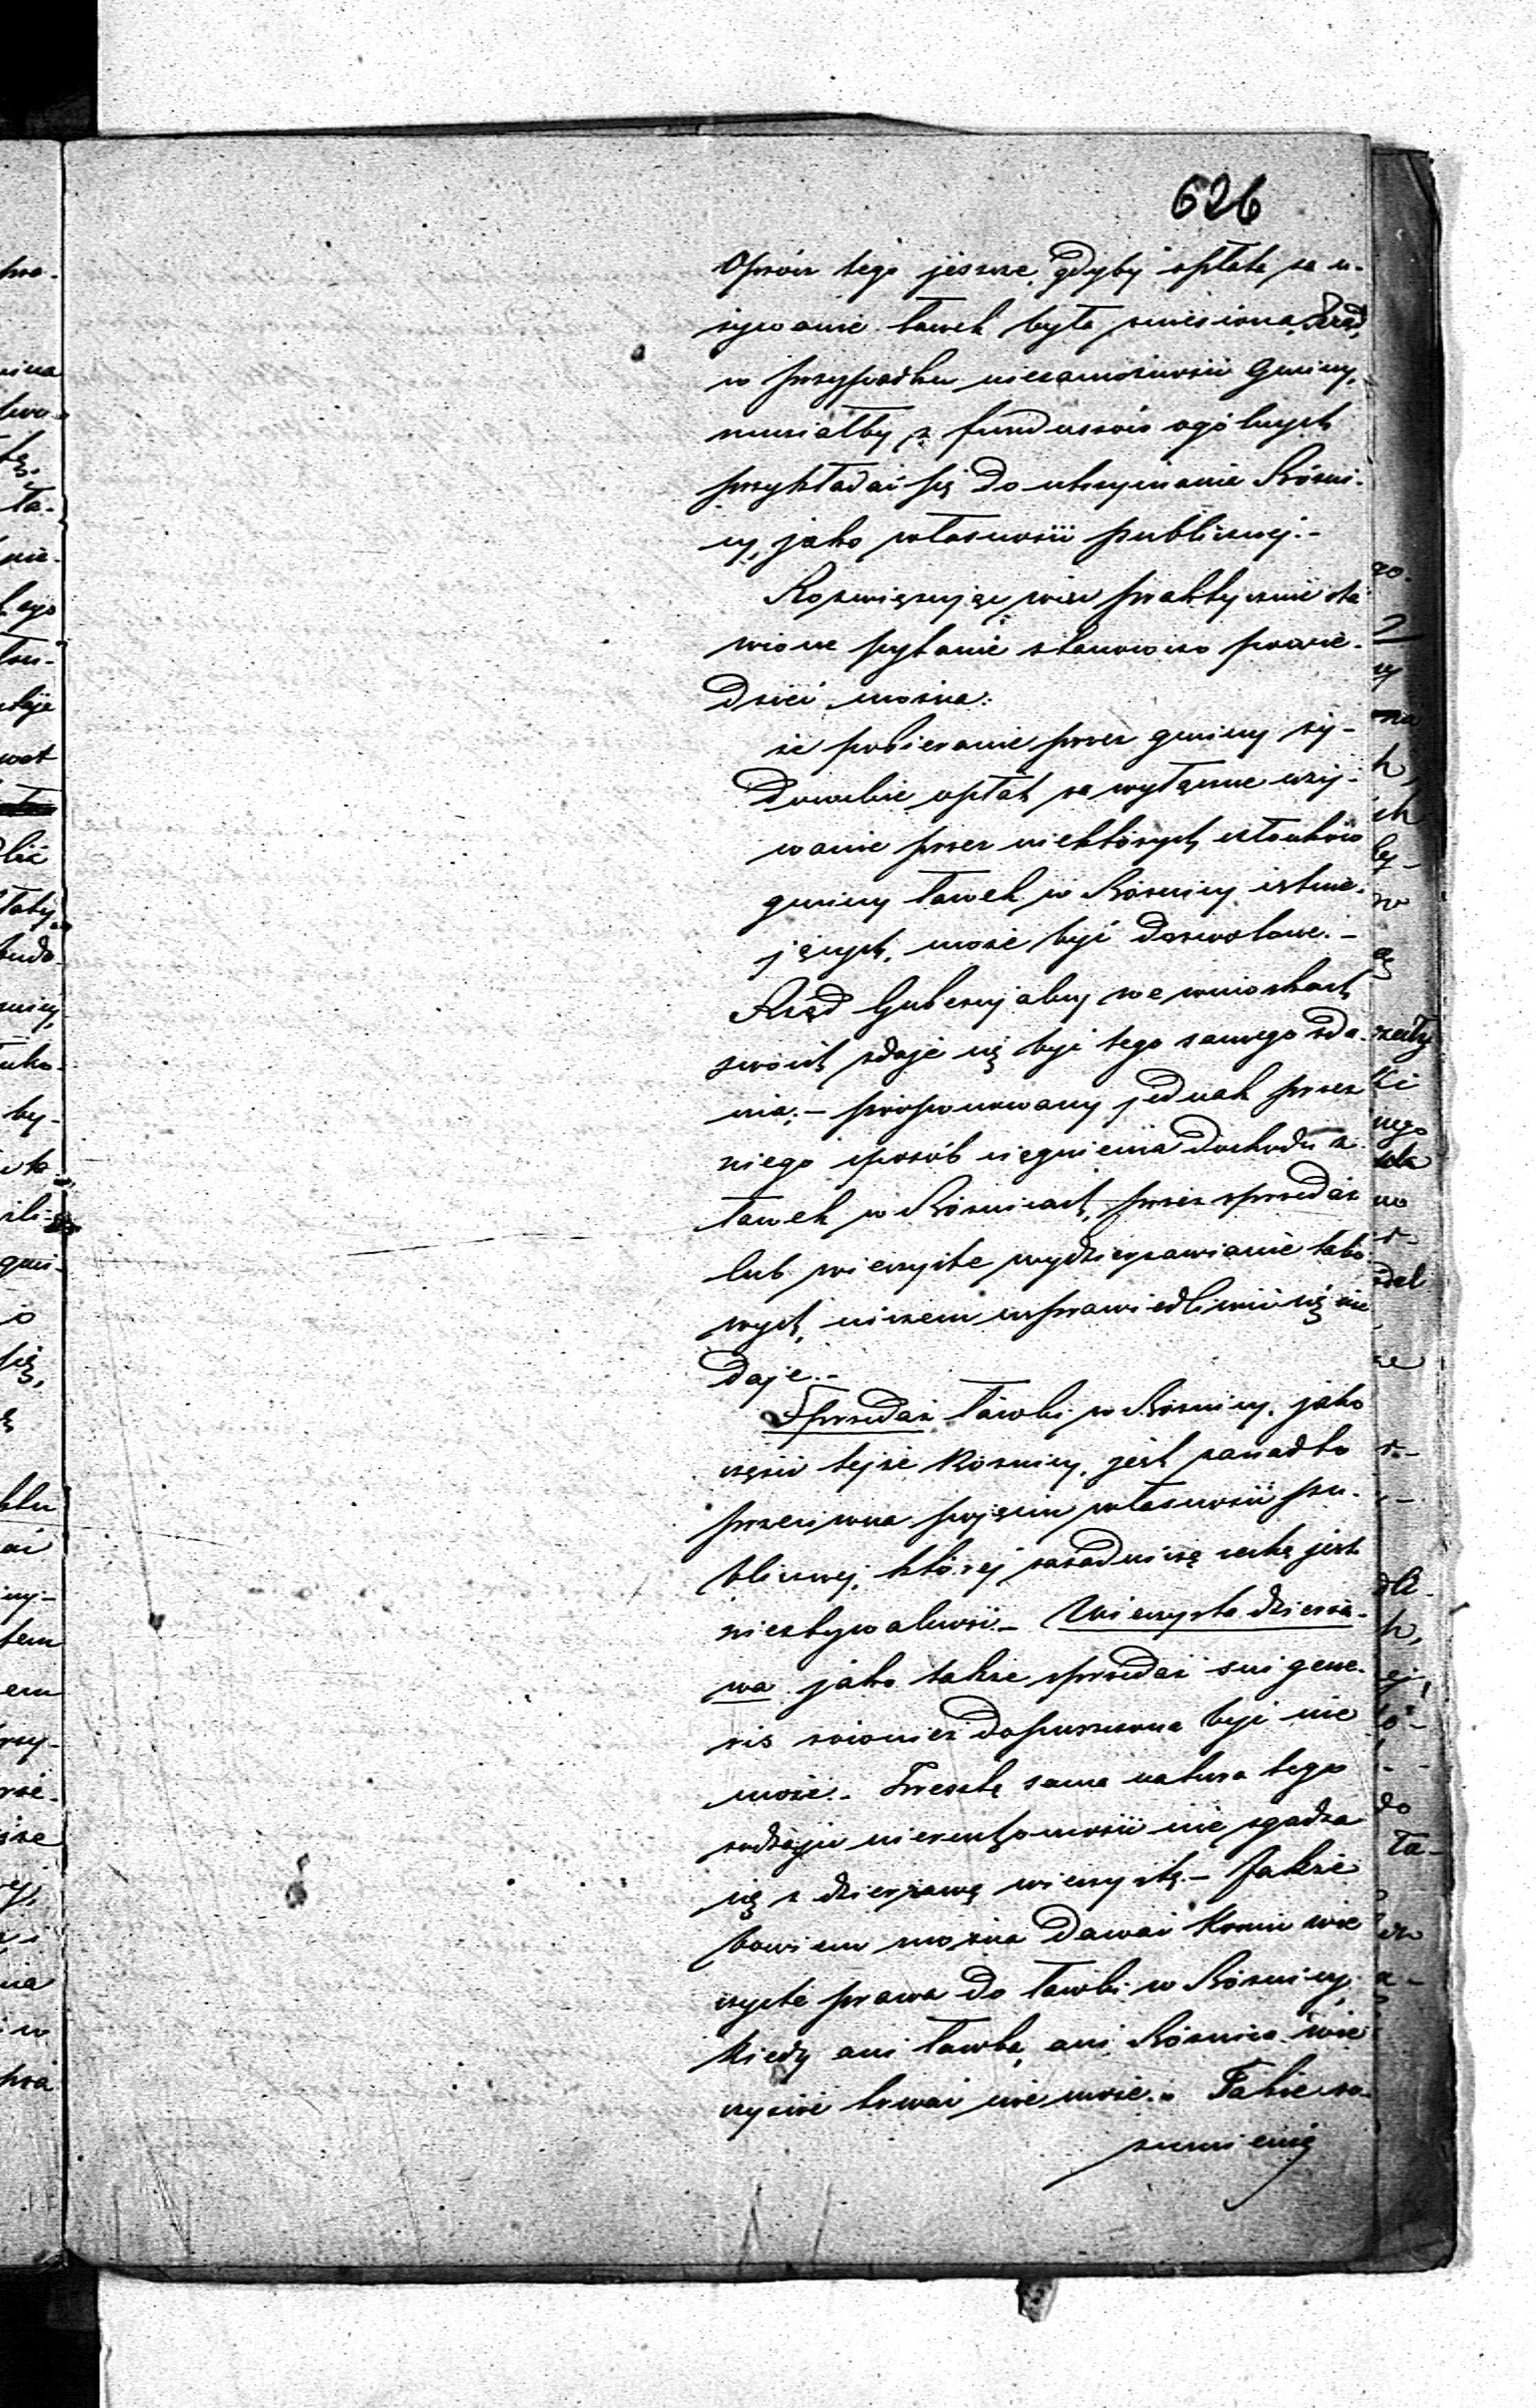 626
Oprócz tego jeszcze, gdyby opłata za u-
żywanie ławek była zniesiona, Rząd,
w przypadku niezamożności Gminy,
musiałby z funduszów ogólnych
przykładać się do utrzymania Bóżni-
cy, jako własności publicznej.-
Rozwiązując więc praktycznie sta
wione pytanie stanowczo powie-
dzieć można:
że pobieranie przez gminy ży-
dowskie opłat za wyłączne uży-
wanie przez niektórych członków
gminy ławek w Bóżnicy istnie-
jących, może być dozwolone.-
Rząd Gubernjalny we wnioskach
swoich zdaje się być tego samego zda-
nia;- proponowany jednak przez
niego sposób ciągnienia dochodu z
ławek w Bóżnicach, przez sprzedaż
lub wieczyste wydzierżawianie tako
wych, niczem usprawiedliwić się nie
daje.-
Sprzedaż ławki w Bóżnicy, jako
części tejże Bóżnicy, jest zanadto
przeciwna pojęciu własności pu-
blicznej, której zasadniczą cechą jest
niezbywalność.- Wieczysta dzierża-
wa jako także sprzedaż sui gene-
ris również dopuszczona być nie
może.- Zresztą sama natura tego
rodzaju nieruchomości nie zgadza
się z dzierżawą wieczystą.- Jakże
bowiem można dawać komu wie
czyste prawa do ławki w Bóżnicy,
kiedy ani ławka, ani Bóżnica wie
czyście trwać nie może.- Takie ro-
zumienie